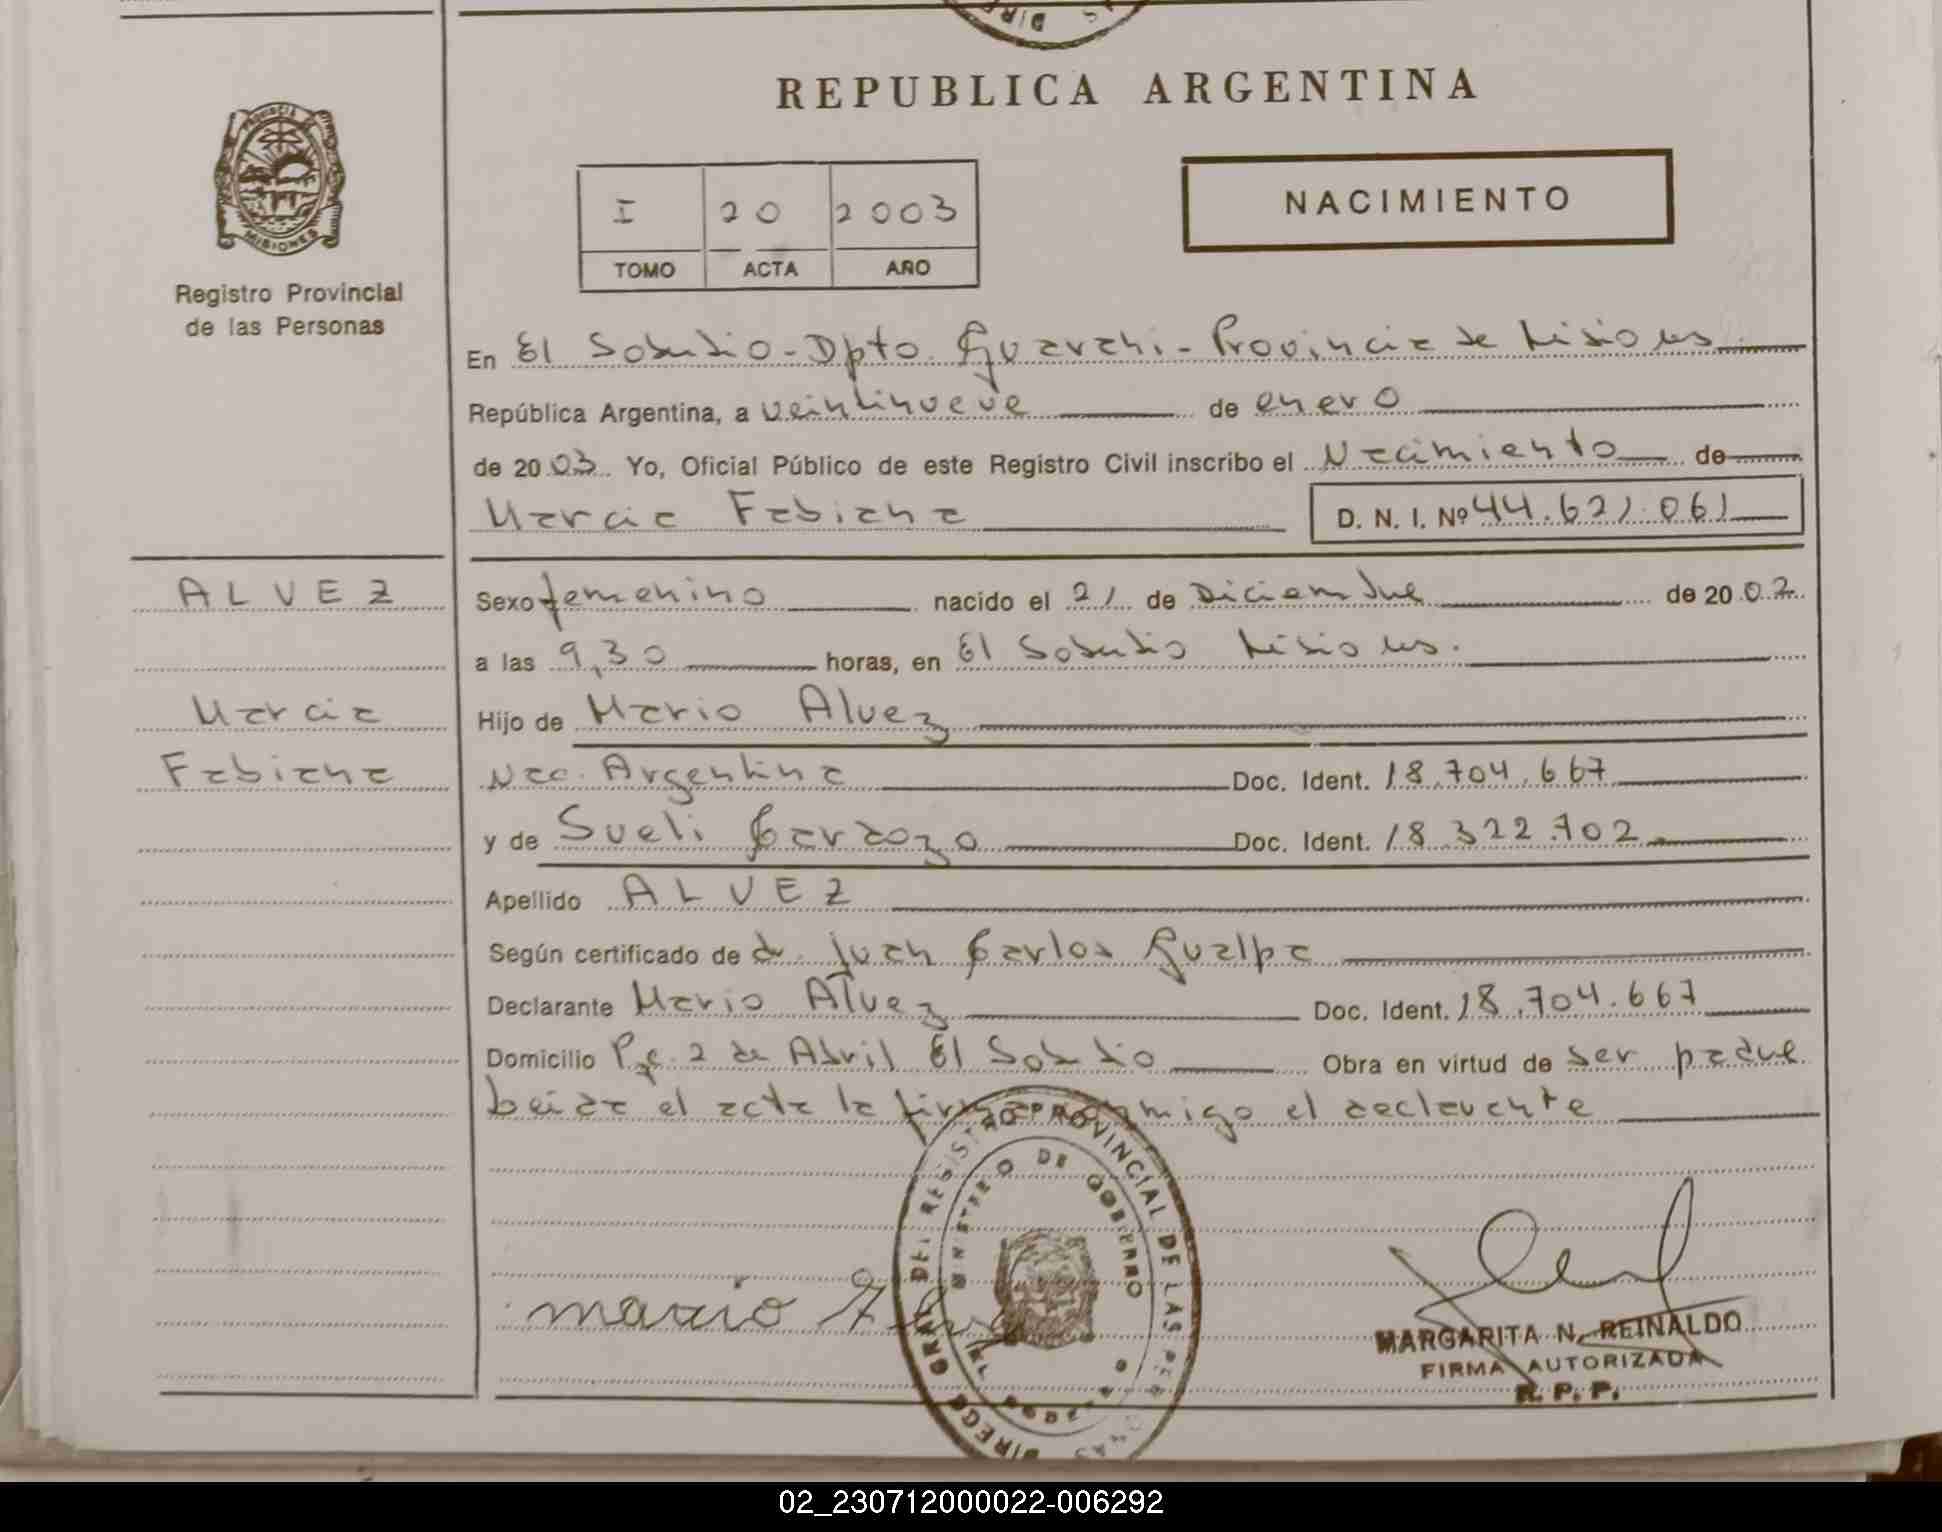 REPUBLICA ARGENTINA
PROVINCIA DE
MISIONES
Registro Provincial
de las Personas
I 20 2003
TOMO ACTA AÑO
NACIMIENTO
En El Soberbio - Dpto Guarani - Provincia de Misiones
República Argentina, a veintinueve de enero
de 2003 Yo, Oficial Público de este Registro Civil inscribo el Nacimiento de
Marcia Fabiana D. N. I. Nº 44.621.061
ALVEZ
Marcia
Fabiana
Sexo femenino nacido el 21 de Diciembre de 2002
a las 9,30 horas, en El Soberbio Misiones.
Hijo de Mario Alvez
Nac. Argentina Doc. Ident. 18.704.667
y de Sueli Carzozo Doc. Ident. 18.322.702
Apellido ALVEZ
Según certificado de dr. Juan Carlos Gualpa
Declarante Mario Alvez Doc. Ident. 18.704.667
Domicilio 2 de Abril El Soberbio Obra en virtud de ser padre
Leida el acta la firma conmigo el declarante
DIRECC. GRAL. DEL REGISTRO PROVINCIAL DE LAS PERSONAS
MINISTERIO DE GOBIERNO
mario
MARGARITA N. REINALDO
FIRMA AUTORIZADA
R. P. P.
02_230712000022-006292